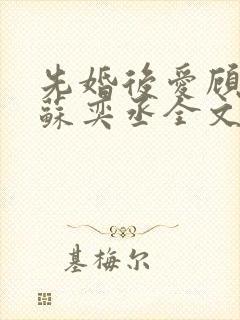 先婚後愛顧
蘇奕丞全文
基梅尔